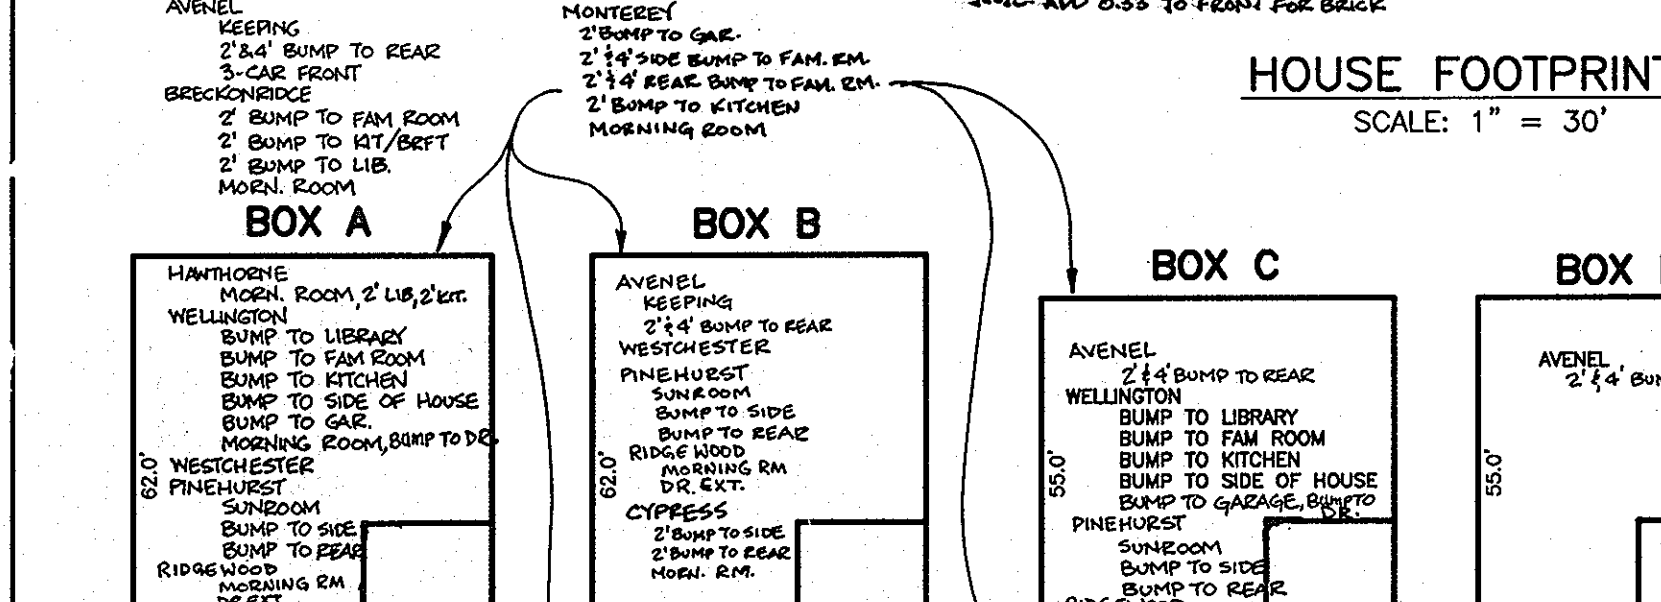 AVENEL
KEEPING
2'&4' BUMP TO REAR
3-CAR FRONT
BRECKONRIDGE
2' BUMP TO FAM ROOM
2' BUMP TO KIT/BRFT
2' BUMP TO LIB.
MORN. ROOM
MONTEREY
2' BUMP TO GAR.
2' & 4' SIDE BUMP TO FAM. RM.
2' & 4' REAR BUMP TO FAM. RM.
2' BUMP TO KITCHEN
MORNING ROOM
ADD 0.33 TO FRONT FOR BRICK
HOUSE FOOTPRINT
SCALE: 1" = 30'
BOX A
HAWTHORNE
MORN. ROOM, 2' LIB, 2' KIT.
WELLINGTON
BUMP TO LIBRARY
BUMP TO FAM ROOM
BUMP TO KITCHEN
BUMP TO SIDE OF HOUSE
BUMP TO GAR.
MORNING ROOM, BUMP TO DR.
WESTCHESTER
PINEHURST
SUNROOM
BUMP TO SIDE
BUMP TO REAR
RIDGEWOOD
MORNING RM
DR.EXT.
62.0'
BOX B
AVENEL
KEEPING
2' & 4' BUMP TO REAR
WESTCHESTER
PINEHURST
SUNROOM
BUMP TO SIDE
BUMP TO REAR
RIDGEWOOD
MORNING RM
DR. EXT.
CYPRESS
2' BUMP TO SIDE
2' BUMP TO REAR
MORN. RM.
62.0'
BOX C
AVENEL
2' & 4' BUMP TO REAR
WELLINGTON
BUMP TO LIBRARY
BUMP TO FAM ROOM
BUMP TO KITCHEN
BUMP TO SIDE OF HOUSE
BUMP TO GARAGE, BUMP TO
DR.
PINEHURST
SUNROOM
BUMP TO SIDE
BUMP TO REAR
RIDGEWOOD
55.0'
BOX
AVENEL
2' & 4' BUM
55.0'